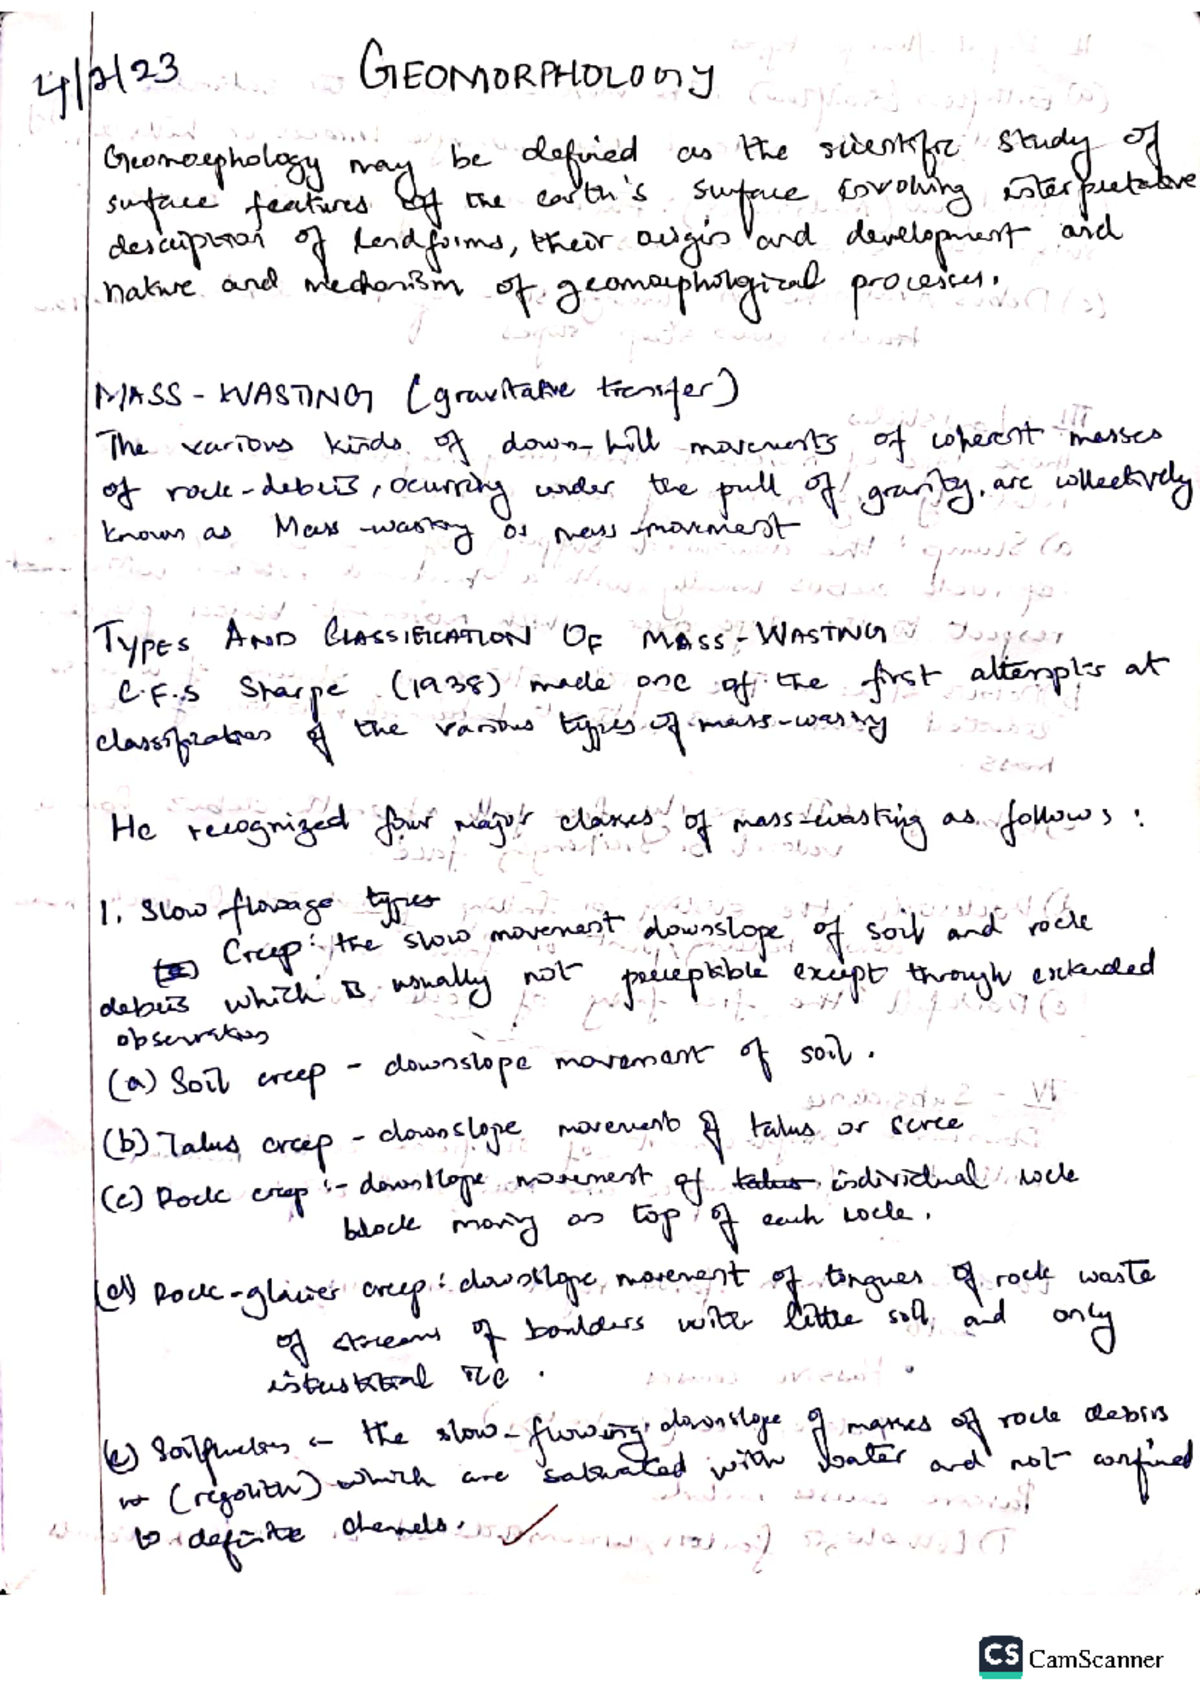 4/2/23
GEOMORPHOLOGY
Geomorphology may be defined as the scientific study of
surface features of the earth's surface involving interpretative
description of landforms, their origin and development and
nature and mechanism of geomorphological processes.
MASS-WASTING (gravitative transfer)
The various kinds of down-hill movements of coherent masses
of rock-debris, ocurring under the pull of gravity, are collectively
known as Mass-wasting or mass movement
TYPES AND CLASSIFICATION OF MASS-WASTING
C.F.S Sharpe (1938) made one of the first attempts at
classification of the various types of mass-wasting
He recognized four major classes of mass-wasting as follows:
1. Slow flowage types
Creep: the slow movement downslope of soil and rock
debris which is usually not perceptible except through extended
observation
(a) Soil creep - downslope movement of soil.
(b) Talus creep - downslope movement of talus or scree
(c) Rock creep :- downslope movement of talus individual rock
block moving as top of each rock.
(d) Rock-glacier creep: downslope movement of tongues of rock waste
of streams of boulders with little soil, and only
interstitial ice.
(e) Solifluction - the slow-flowing downslope of masses of rock debris
(regolith) which are saturated with water and not confined
to definite channels.
CS CamScanner